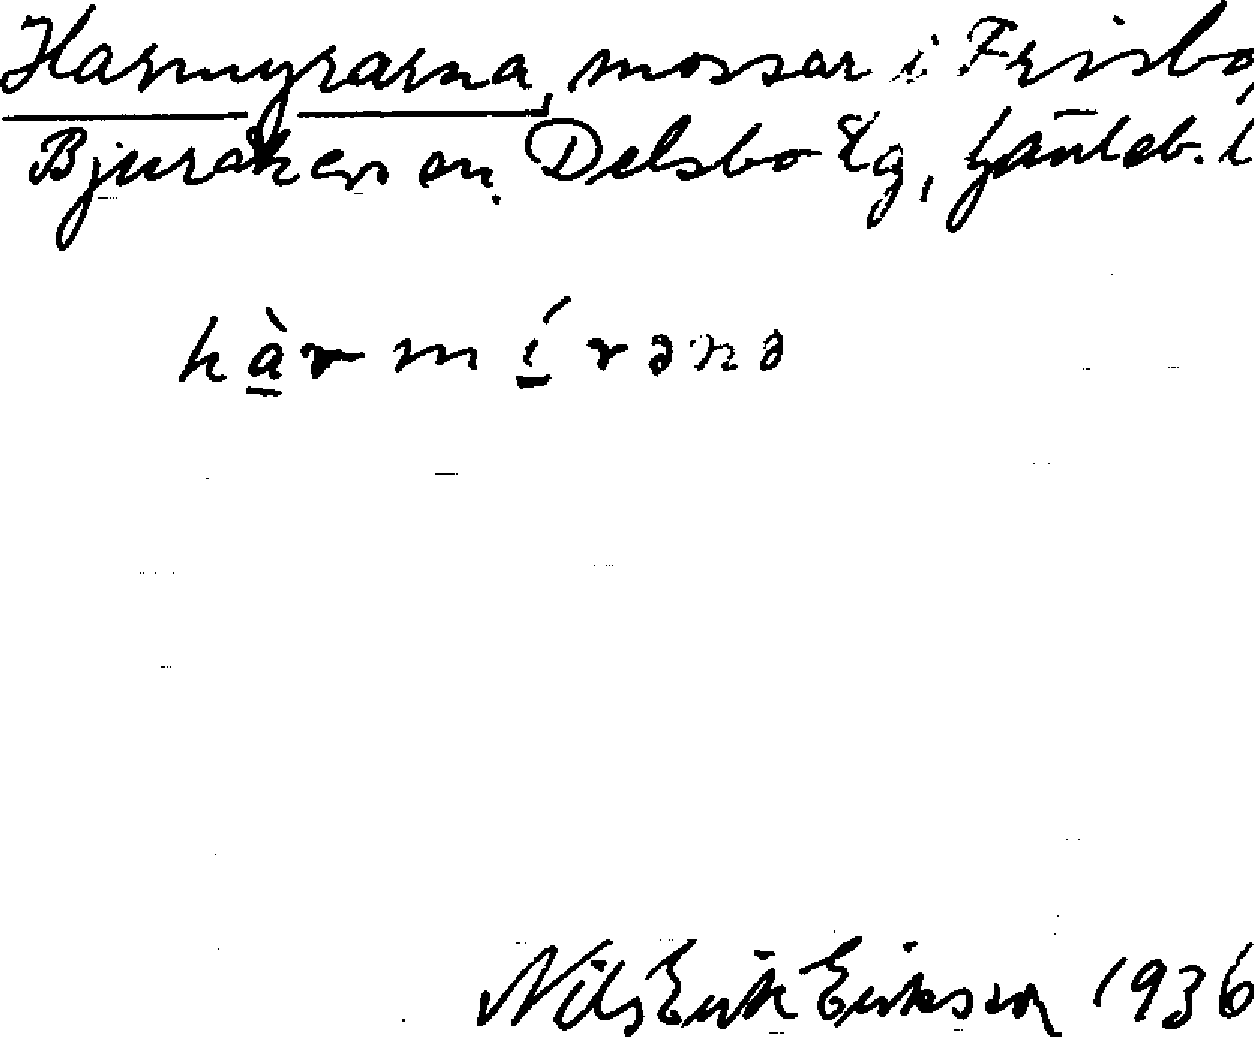 Harmyrarna, mossar i Frisbo,
Bjuråkers sn. Delsbo tg, Gävleb. l
hàrmírənə
Nils Erik Eriksson 1936